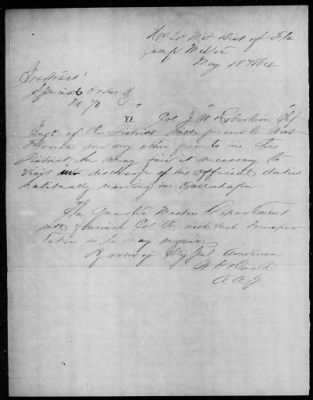 Hd Qrs Mil Dist of Fla
Camp Milton
May 18 1864
Extract
Special Orders
No 70
VI Col J M Robertson Chf
Engr of the District will proceed to West
Florida or any other point in this
District, he may find it necessary to
visit in discharge of his official duties
habitually meeting in Tallahassee
The Quarter Masters Department
will furnish Col R with such transpor
tation as he may require
By order of Maj Genl Anderson
A A G